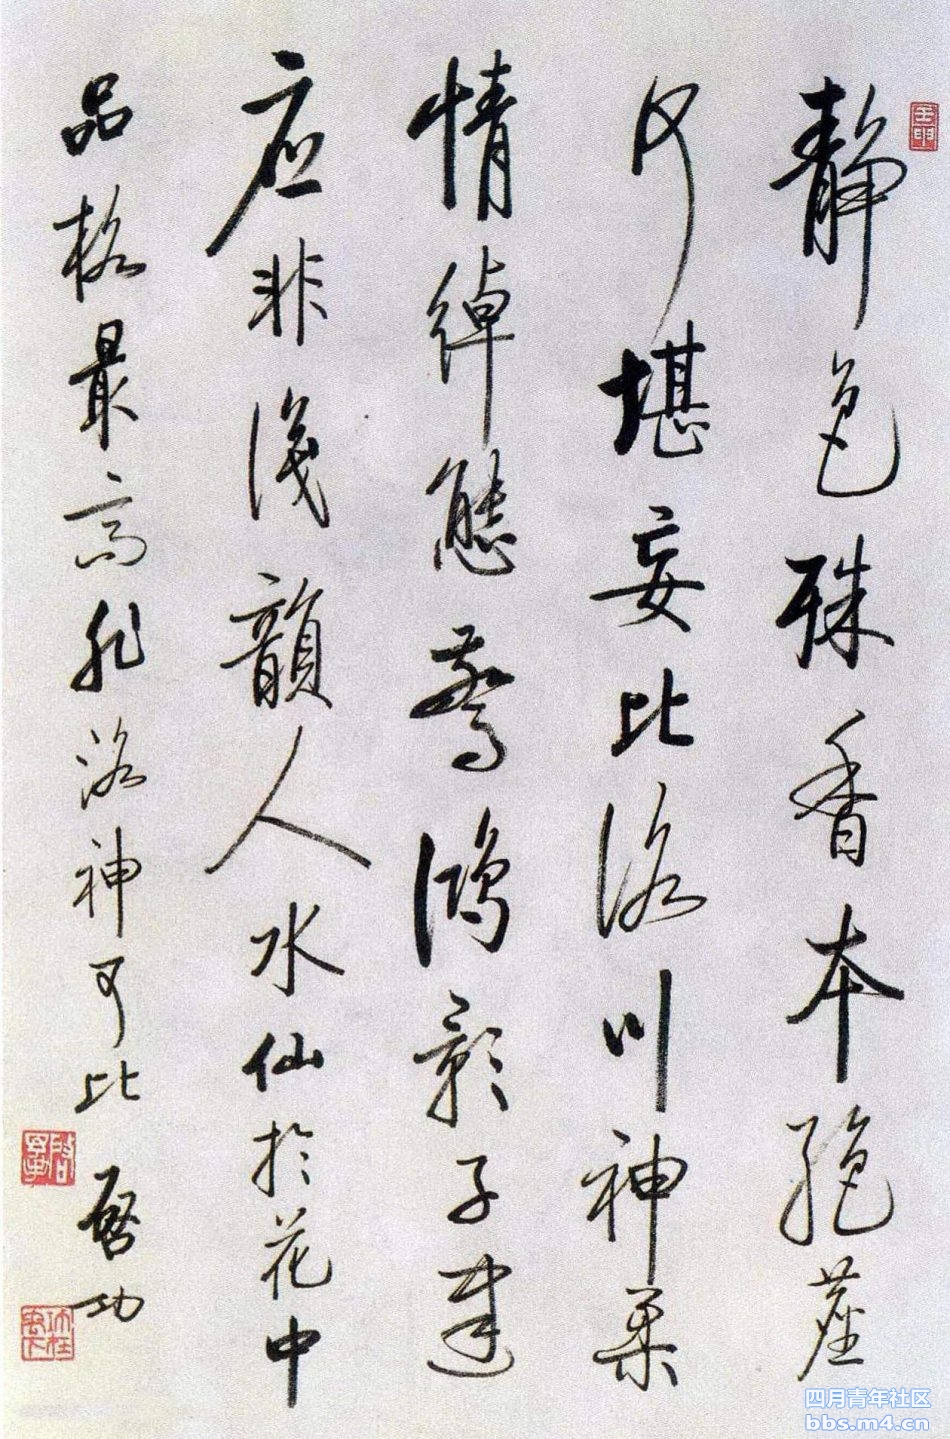 静色殊香本絕塵
何堪妄比洛川神柔
情綽態驚鴻影子建
应非淺韻人水仙於花中
品格最高非洛神可比 啟功
四月青年社区
bbs.m4.cn